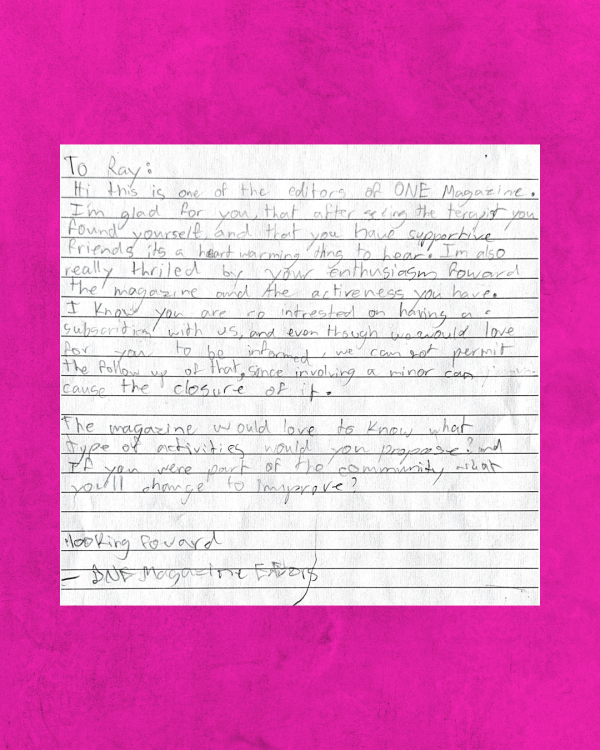 To Ray:
Hi this is one of the editors of ONE Magazine.
I'm glad for you, that after seeing the terapist you
found yourself and that you have supportive
friends its a heart warming thing to hear. Im also
really thriled by your enthusiasm foward
the magazine and the activeness you have.
I know you are so intrested on having a
subscrition with us, and even though we would love
for you to be informed, we can not permit
the follow up of that, since involving a minor can
cause the closure of it.
The magazine would love to know what
type of activities would you propose? and
If you were part of the community what
you'll change to improve?
looking foward
- ONE Magazine